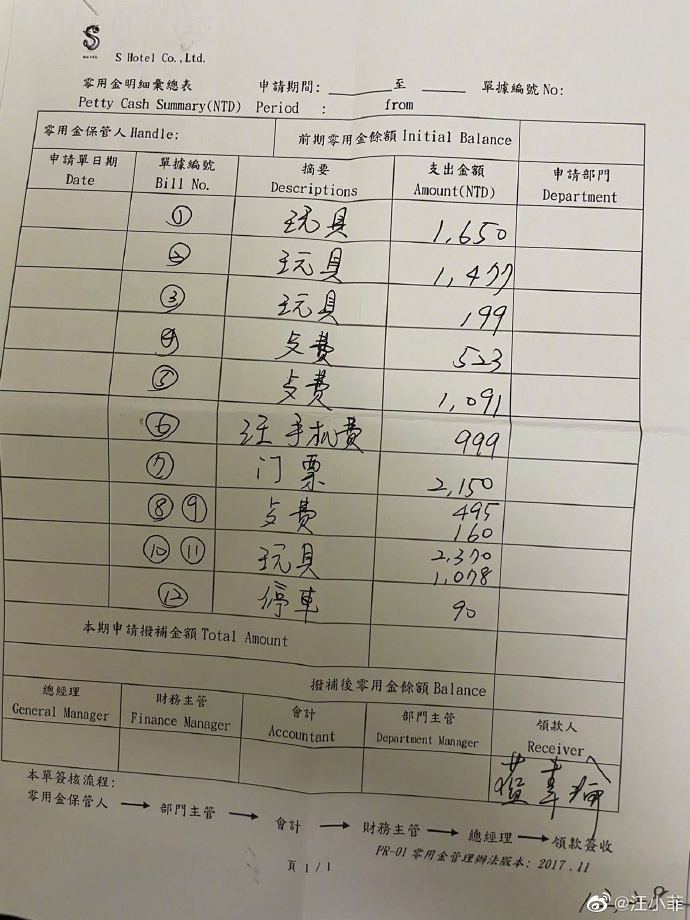 S
HOTEL
S Hotel Co.,Ltd.
零用金明細彙總表 申請期間: ______ 至 ______ 單據編號No:
Petty Cash Summary(NTD) Period : from
零用金保管人Handle: 前期零用金餘額 Initial Balance
申請單日期 單據編號 摘要 支出金額 申請部門
Date Bill No. Descriptions Amount(NTD) Department
① 玩具 1,650
② 玩具 1,477
③ 玩具 199
④ 歺費 523
⑤ 歺費 1,091
⑥ 汪 手机費 999
⑦ 门票 2,150
⑧ ⑨ 歺費 495
160
⑩ ⑪ 玩具 2,370
1,078
⑫ 停車 90
本期申請撥補金額 Total Amount
撥補後零用金餘額 Balance
總經理 財務主管 會計 部門主管 領款人
General Manager Finance Manager Accountant Department Manager Receiver
本單簽核流程:
零用金保管人 → 部門主管 → 會計 → 財務主管 → 總經理 → 領款簽收
PR-01 零用金管理辦法版本: 2017.11
頁 1/1
@汪小菲